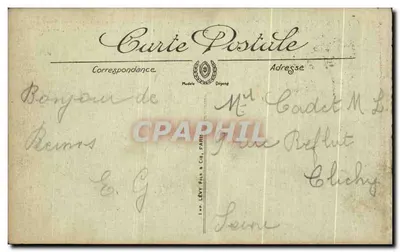 Carte Postale
Correspondance
Adresse
Modèle Déposé
Bonjour de
Reims
E. G
Mel Cadet M L
rue
Clichy
Seine
LÉVY FILS & Cie, PARIS
CPAPHIL